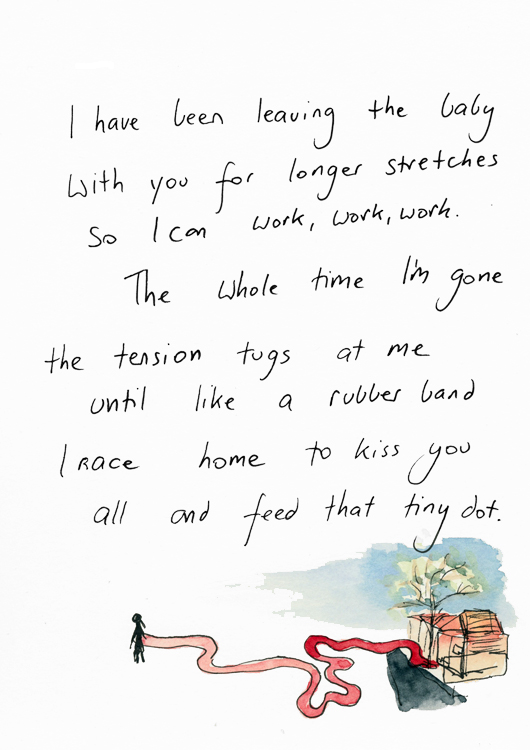 I have been leaving the baby
with you for longer stretches
so I can work, work, work.
The whole time I'm gone
the tension tugs at me
until like a rubber band
I race home to kiss you
all and feed that tiny dot.